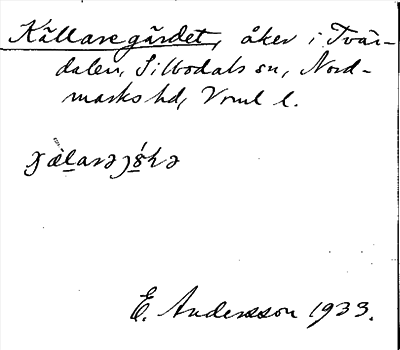 Källaregärdet, åker i Tvär-
dalen, Silbodals sn, Nord-
marks hd, Vrml l.
E. Andersson 1933.